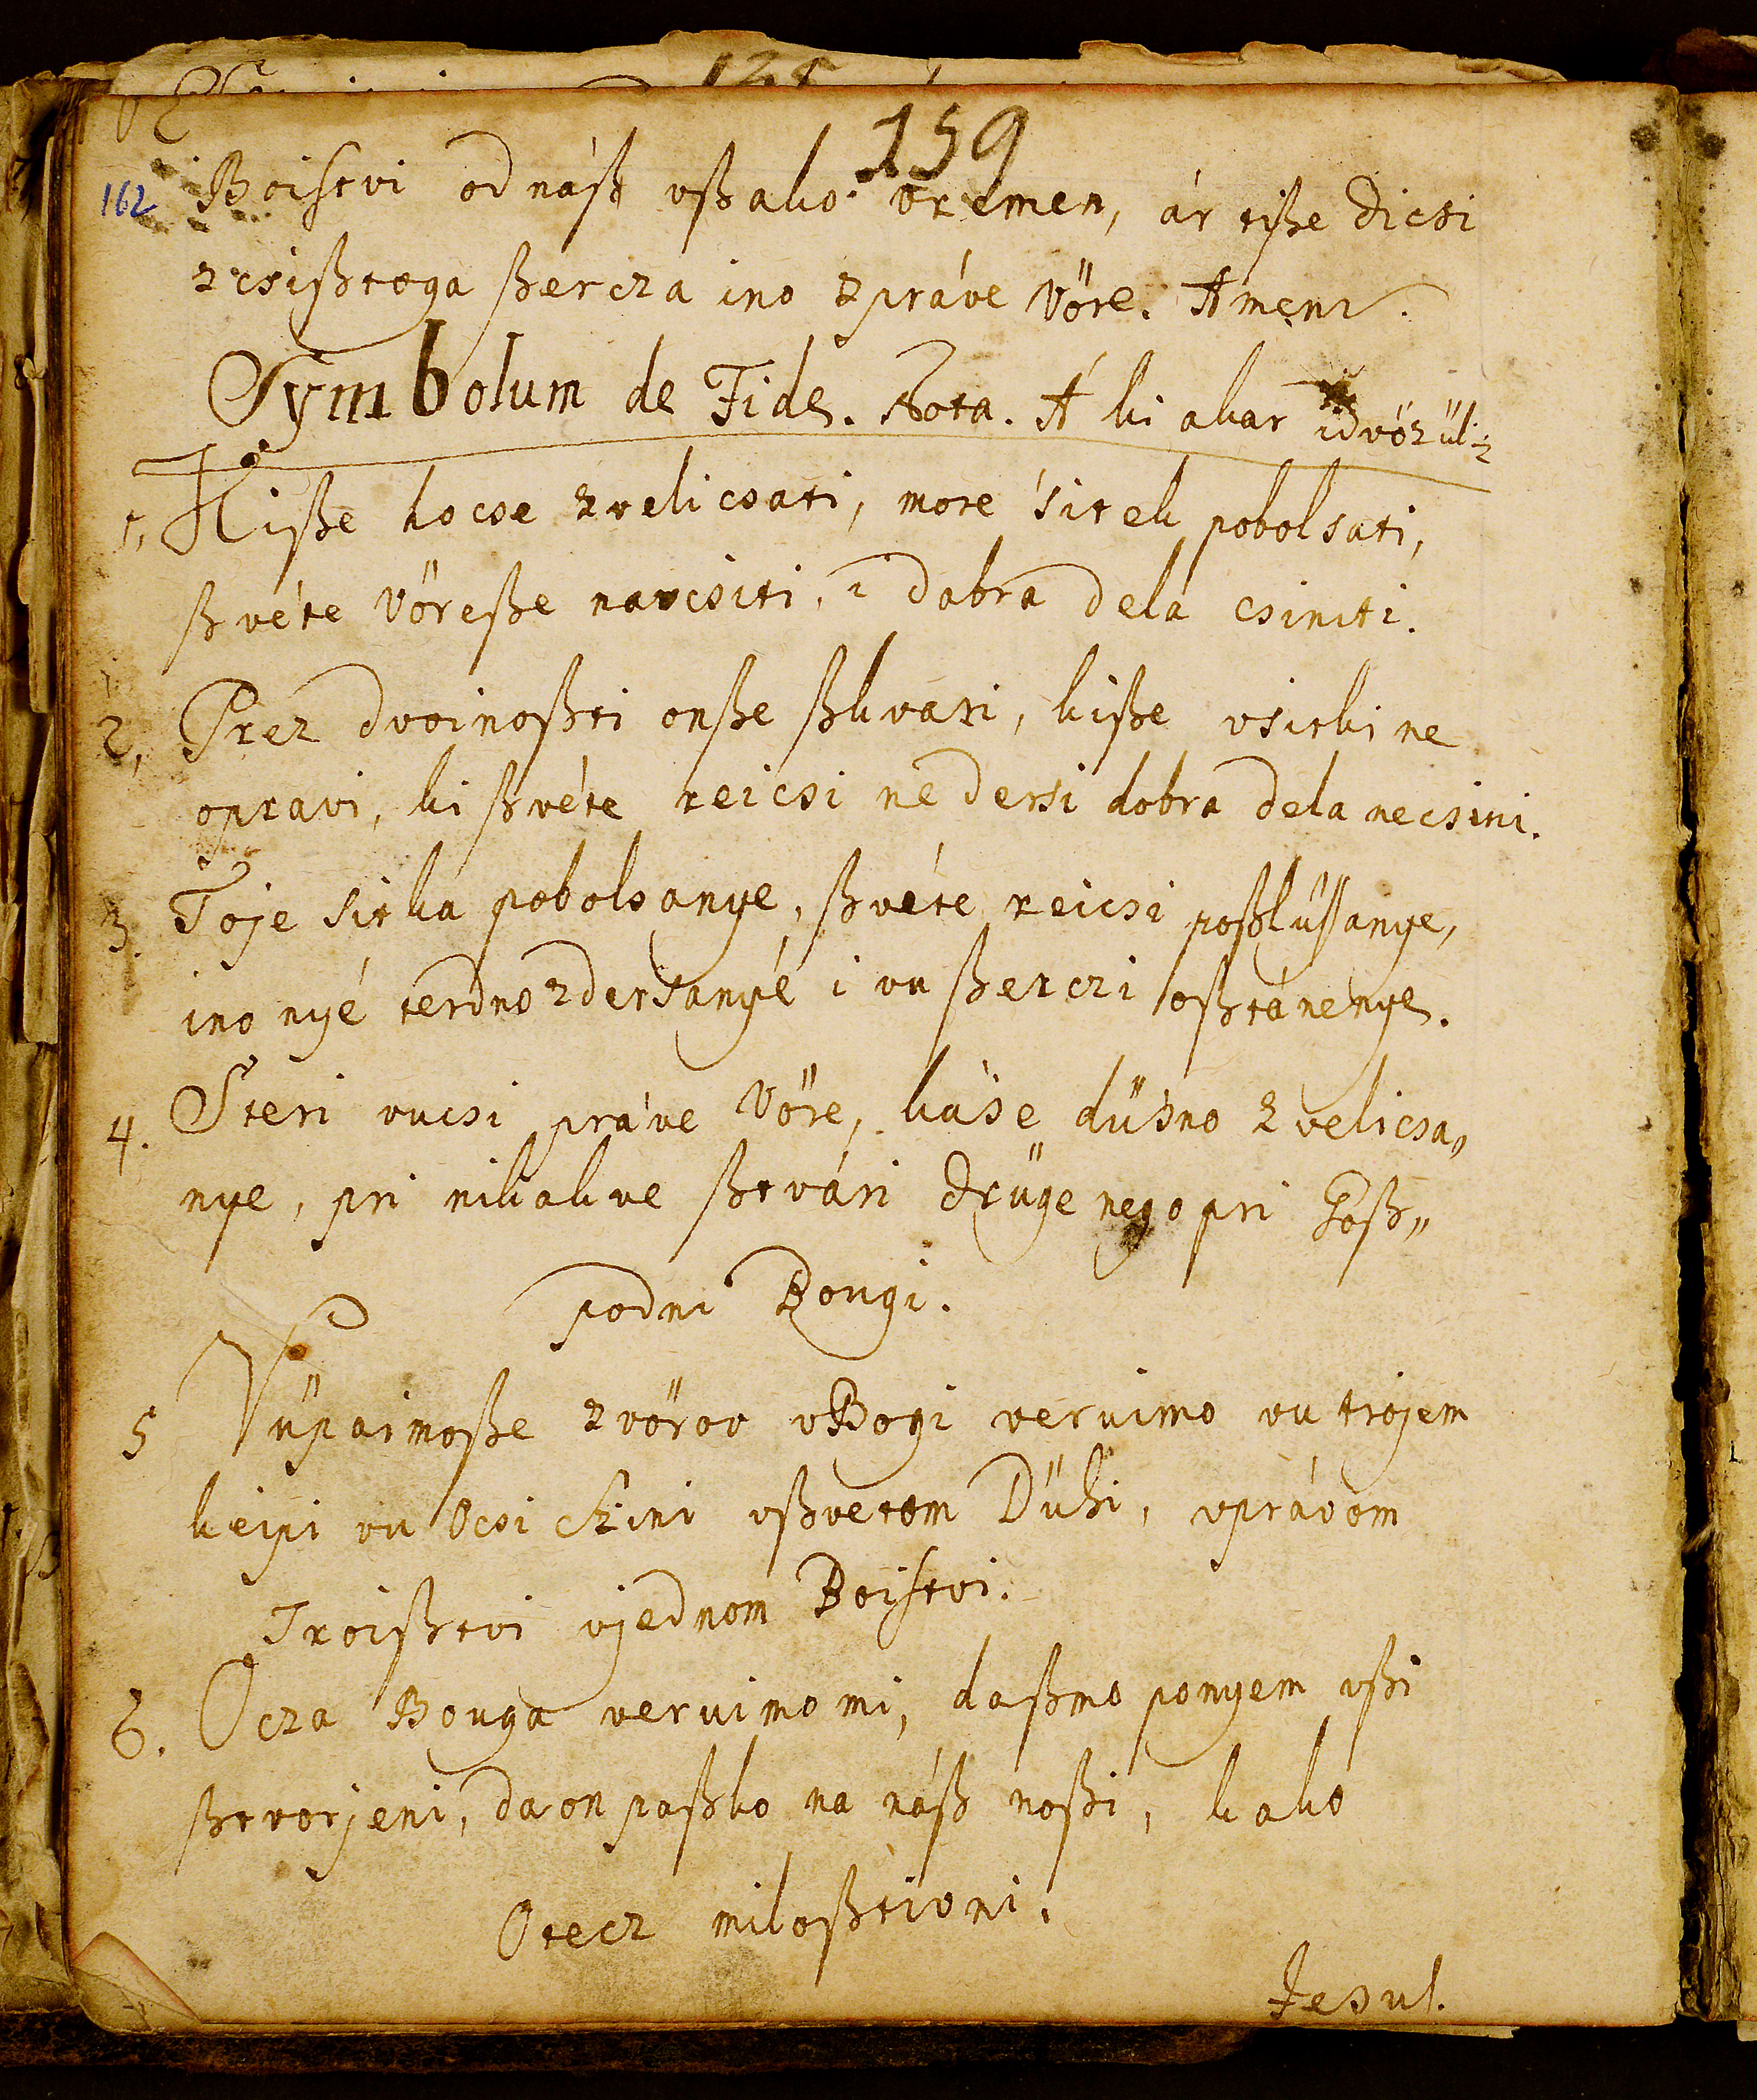 159
162
Boistvi od náß vßako vremen, ár tiße dicsi
zcsißtoga ßercza ino zpráve Vöre. Amen.
Symbolum de Fide. Nota. A ki akar idvözül:
1, Kiße hocse zvelicsati, more sitek pobolsati,
ßvéte Vöreße navcsiti, i dobra dela csiniti.
2, Prez dvoinoßti onße ßkvari, kiße vsitki ne
opravi, ki ßvéte reicsi ne dersi dobra dela necsini.
3. Toje sitka pobolsanye, ßvéte reicsi poßlűssanye,
ino nyé terdno zdersanyé i vu ßerczi oßtánenye.
4. Steri vucsi práve Vöre, käse düsno zvelicsa„
nye, pri nikakve ßtvári drüge nego pri Goß„
podni Bougi.
5 Vüpaimoße zvörov vBogi vervimo vu trojem
keipi vu Ocsi Szini vßvetom Dühi, vprávom
Troißtvi vjednom Boistvi.
6. Ocza Bouga vervimo mi, daßmo ponyem vßi
ßtvorjeni, da on paßko na náß noßi, kako
Otecz miloßtivni.
Jesuſ.